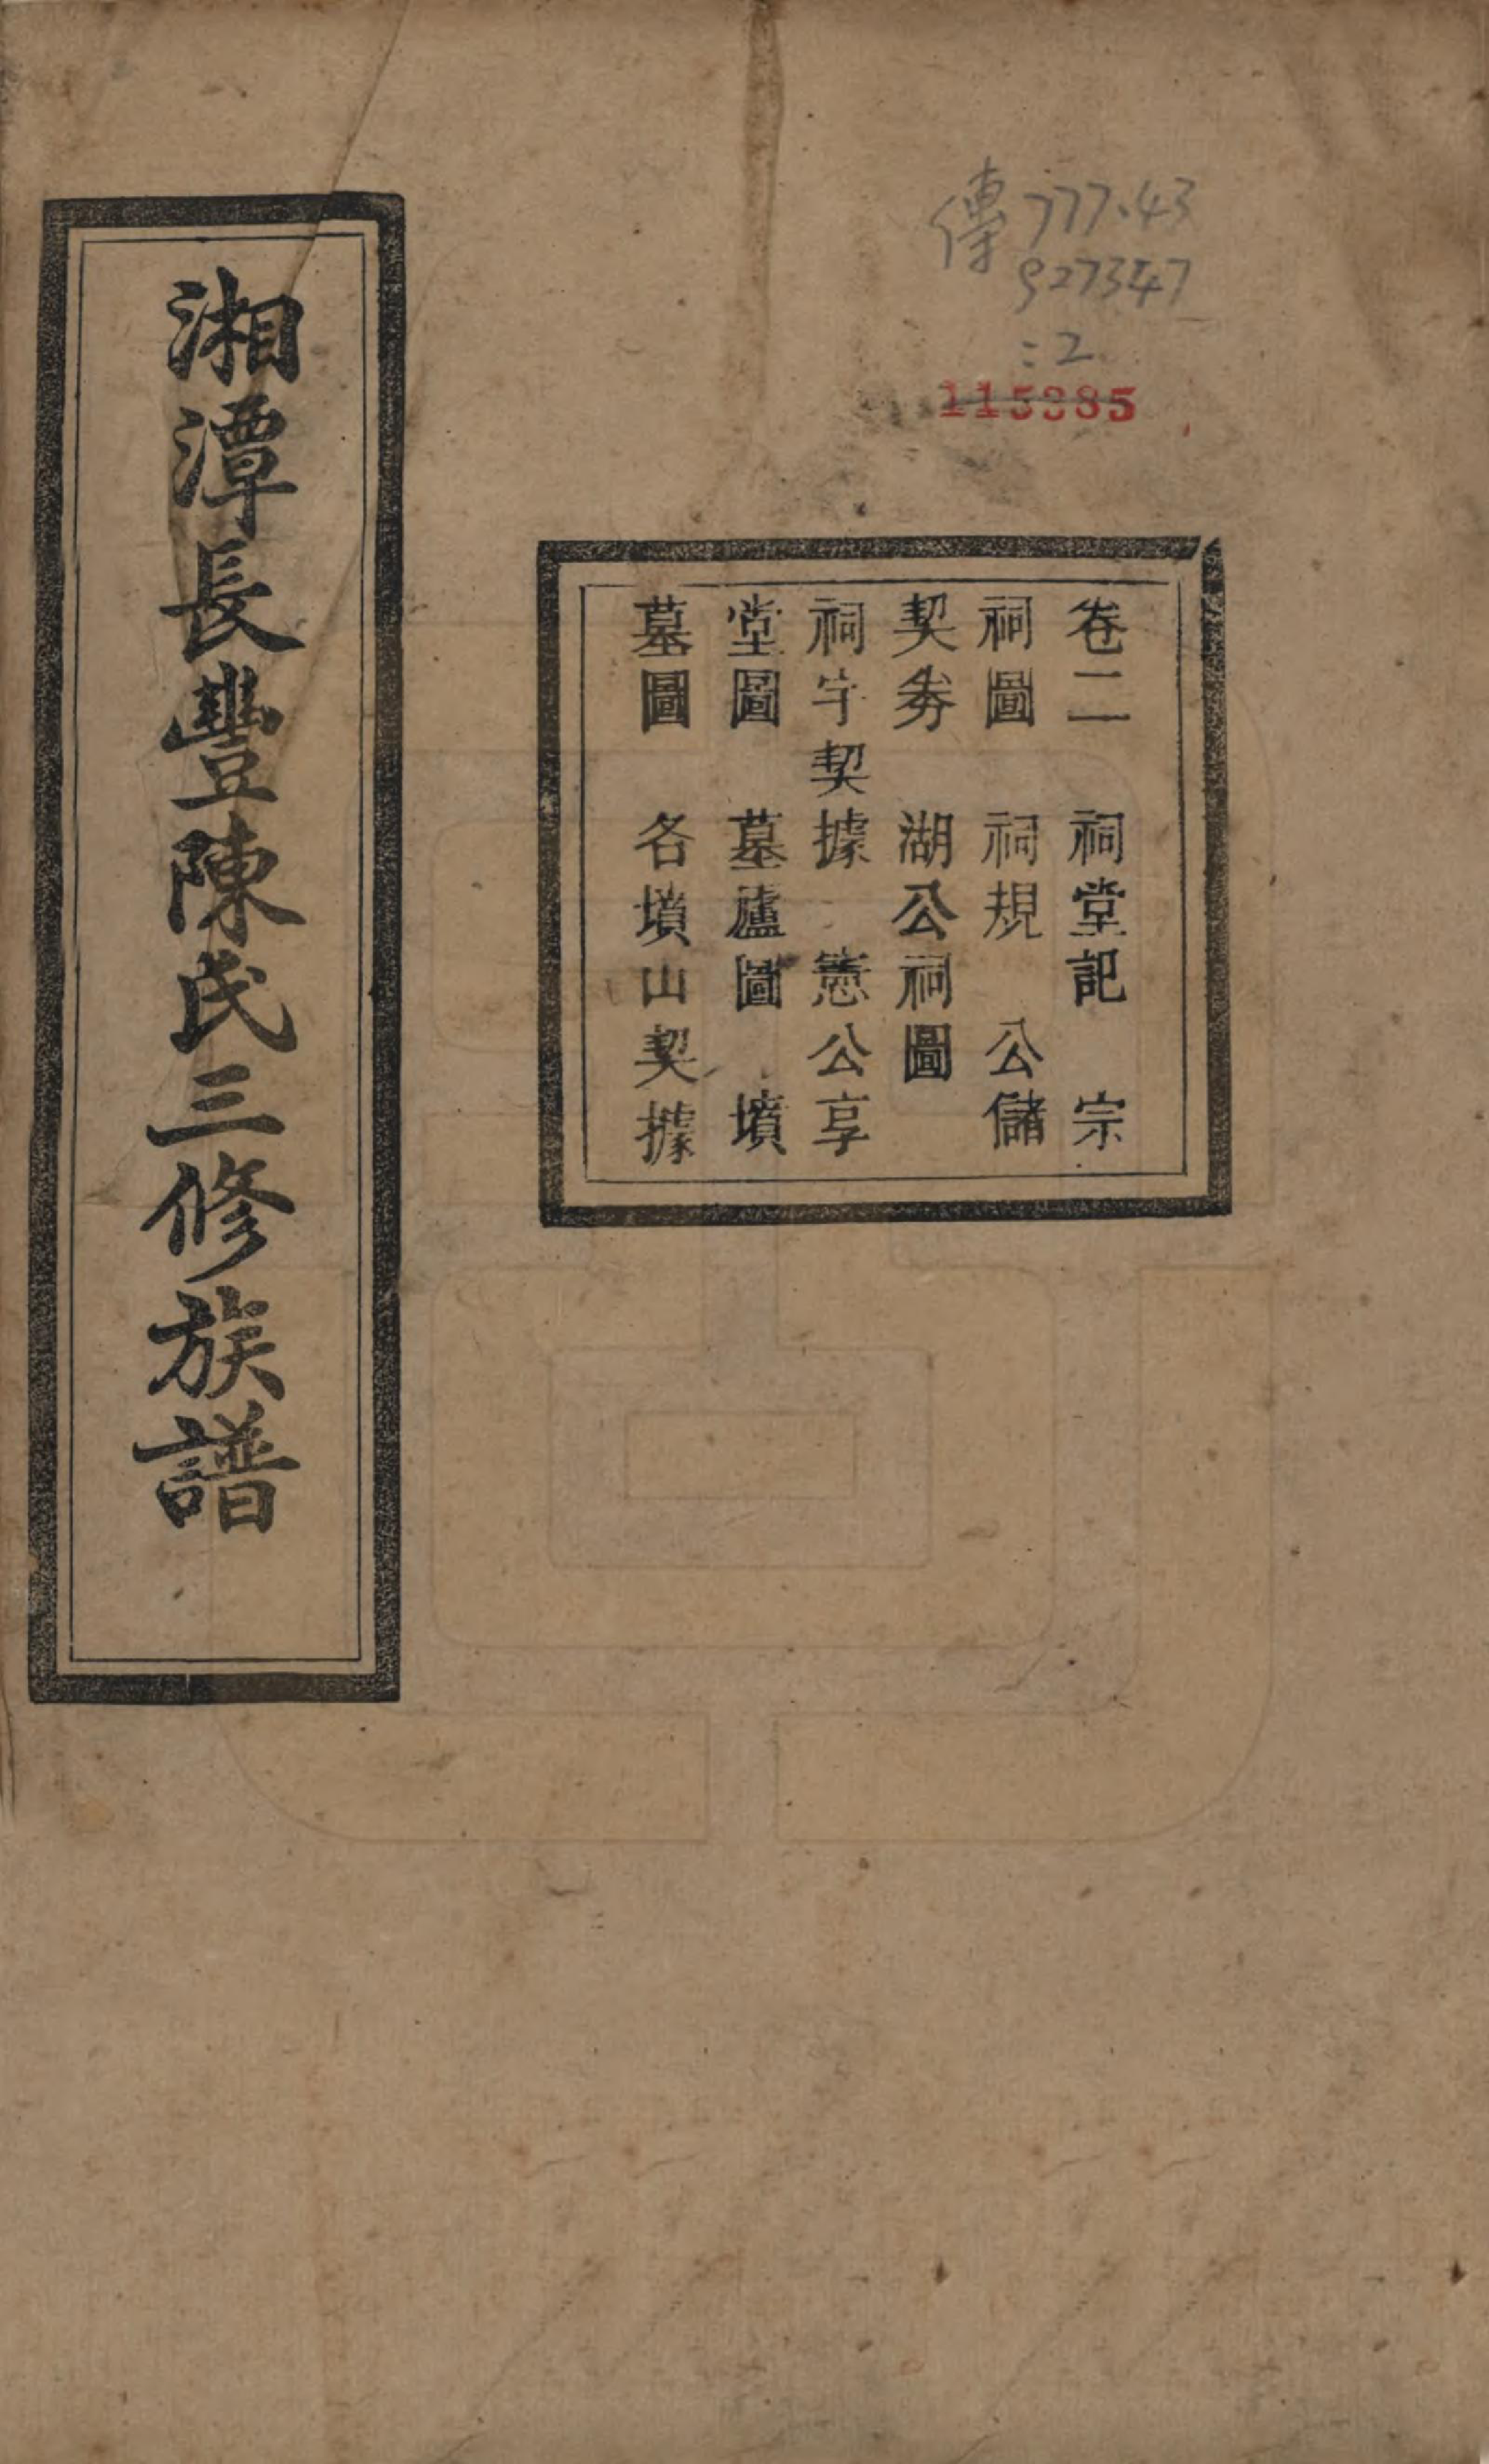 傳777.43
927347
:2
115385
卷二 祠堂記 宗
祠圖 祠規 公儲
契券 湖公祠圖
祠宇契據 憲公享
堂圖 墓廬圖 墳
墓圖 各墳山契據
湘潭長豐陳氏三修族譜